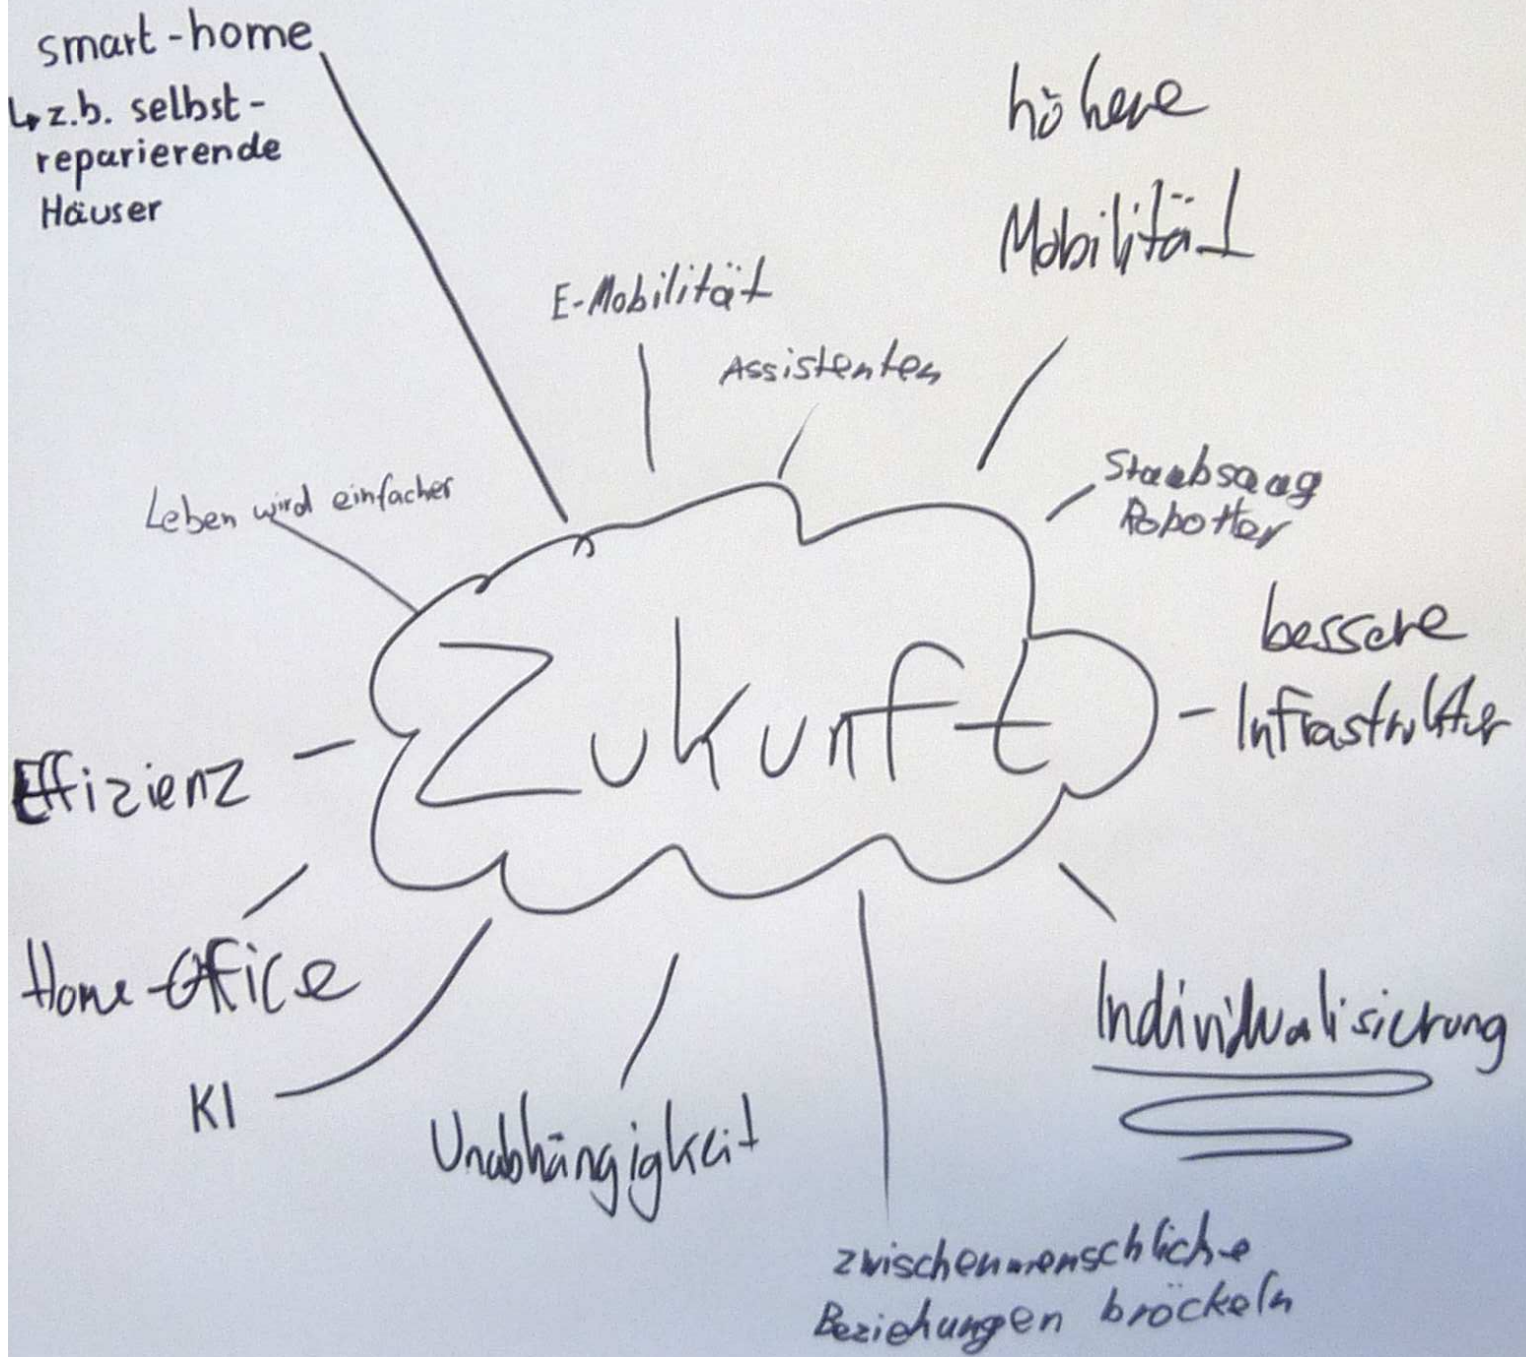 smart-home
↳ z.b. selbst-
reparierende
Häuser
höhere
Mobilität
E-Mobilität
Assistenten
Staubsaug
Robotter
Leben wird einfacher
bessere
Infrastruktur
Zukunft
Effizienz
Home-Office
Individualisierung
KI
Unabhängigkeit
zwischenmenschliche
Beziehungen bröckeln